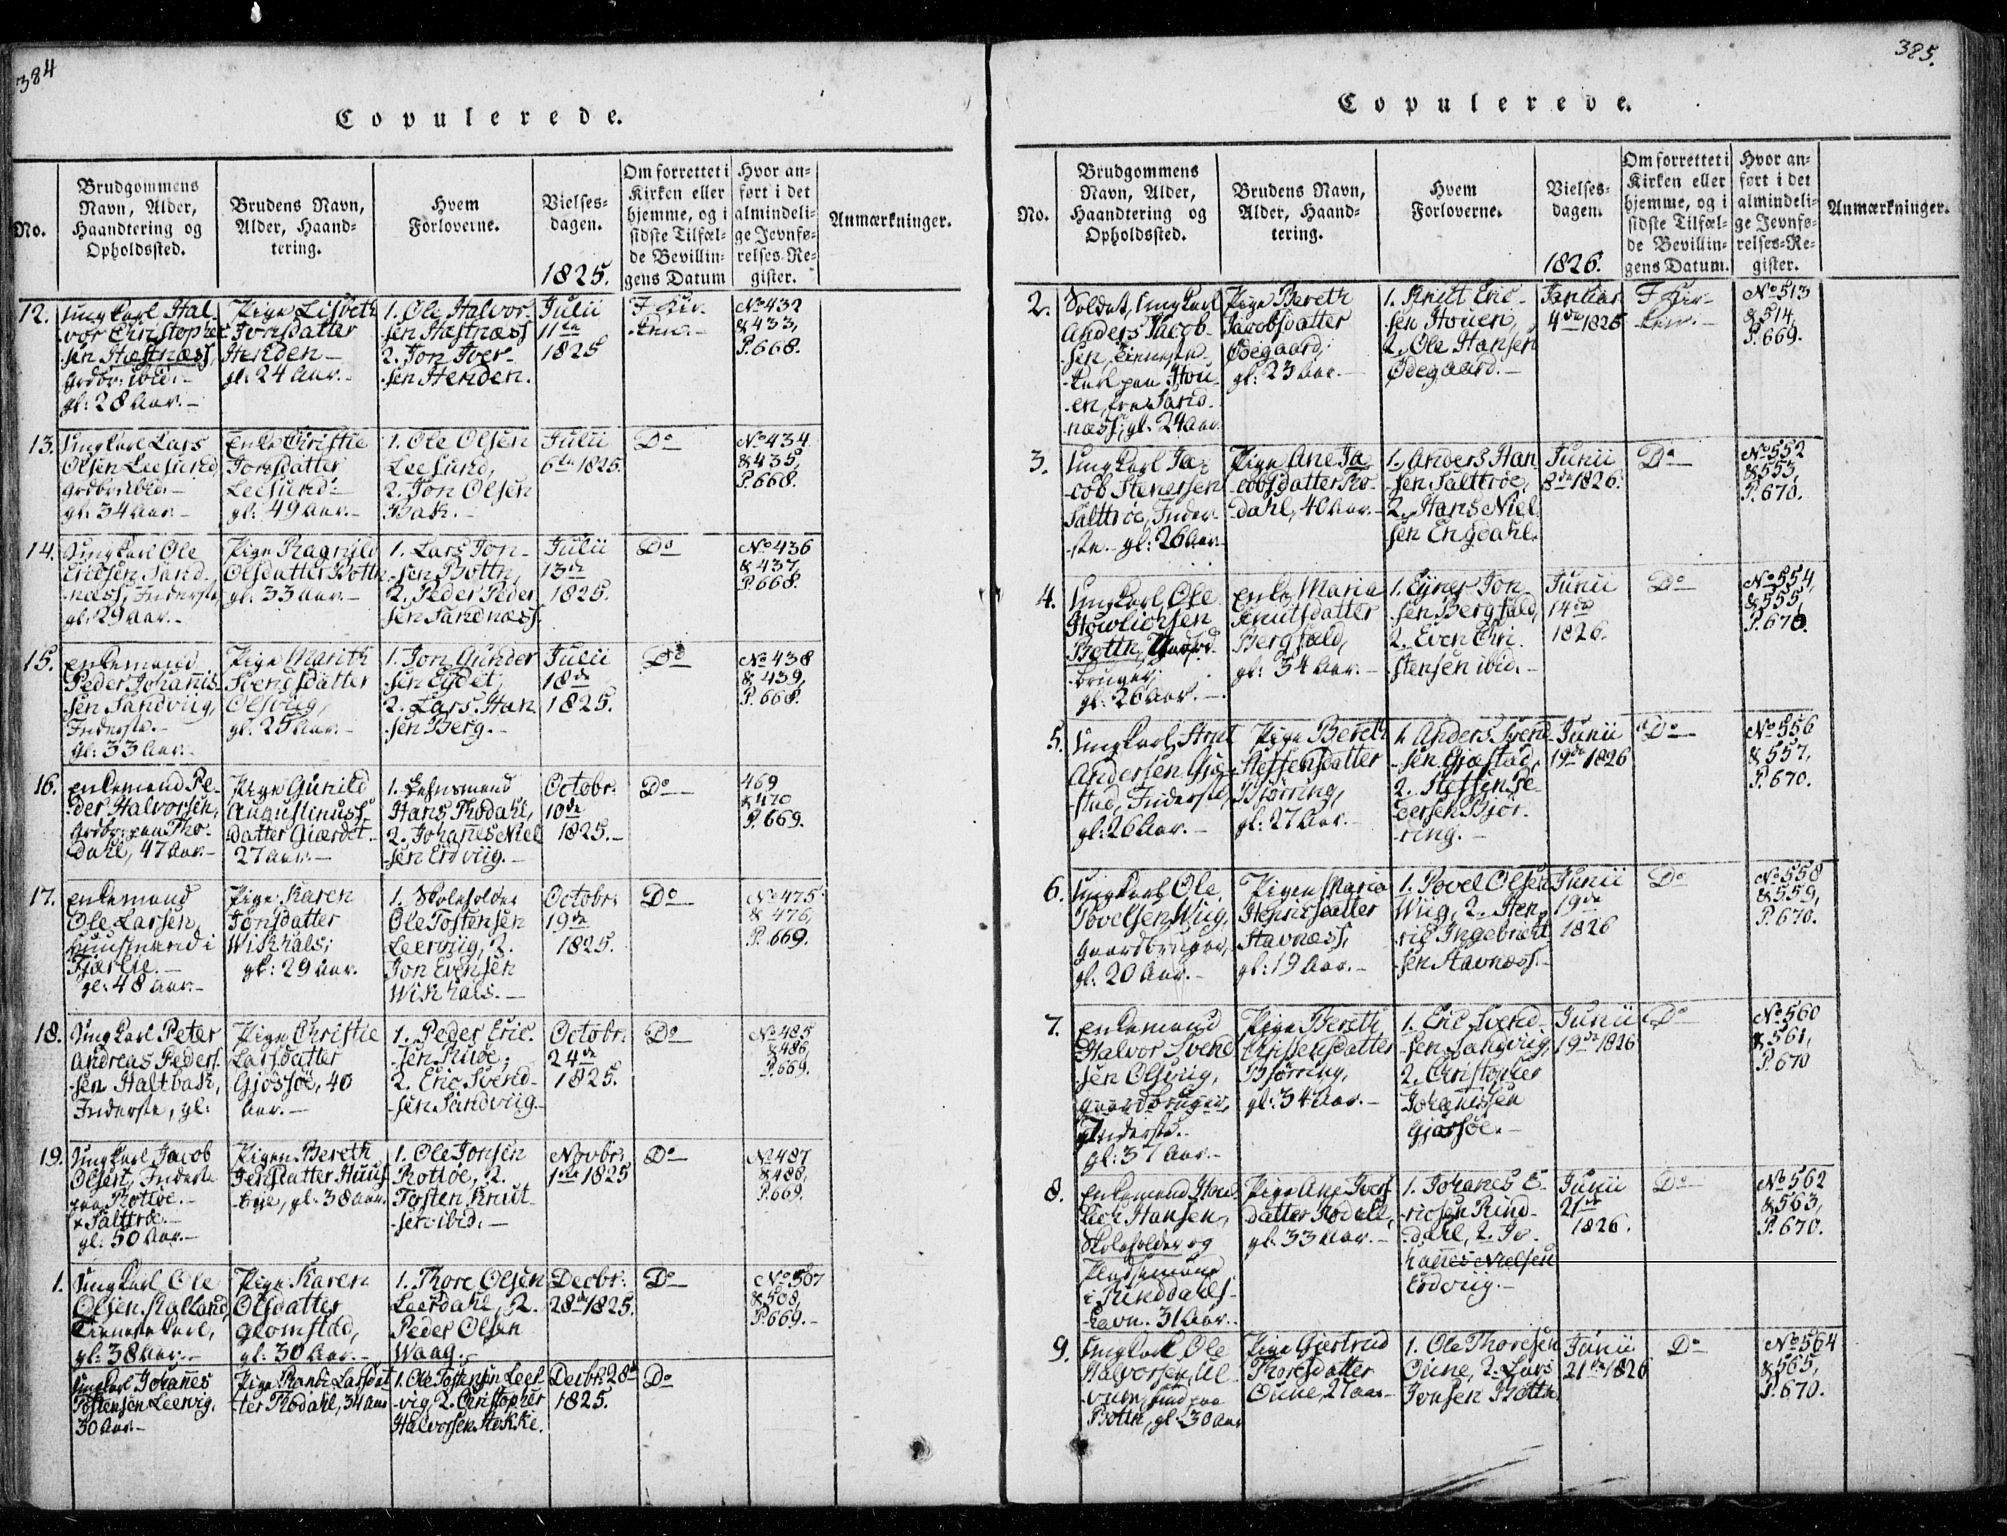 384
Copulerede.
No.
Brudgommens
Navn, Alder,
Haandtering og
Opholdssted.
Brudens Navn,
Alder, Haand-
tering.
Hvem
Forloverne.
Vielses-
dagen.
1825.
Om forrettet i
Kirken eller
hjemme, og i
sidste Tilfæl-
de Bevillin-
gens Datum
Hvor an-
ført i det
almindeli-
ge Jevnfø-
relses-Re-
gister.
Anmærkninger.
12.
Ungkarl Hal-
vor Christopher
sen Hæstnæss,
Grdbr: ibid:
gl: 28 Aar.
Pige Lisbeth
Jonsdatter
Henden
gl: 24 Aar.
1. Ole Halvor-
sen Hæstnæss
2. Jon Iver-
sen Henden.
Julii
11te
1825
I Kir-
ken.
No 432
& 433,
P. 668.
13.
Ungkarl Lars
Olsen Leesund,
Grdbr: ibid.
gl: 34 Aar.
Enke Christie
Jonsdatter
Leesund
gl: 49 Aar.
1. Ole Olsen
Leesund,
2. Jon Olsen
Bak.
Julii
6te 1825.
Do
No 434
& 435,
P. 668.
14.
Ungkarl Ole
Ericsen Sand-
næss, Inderste,
gl: 29 Aar.
Pige Ragnild
Olsdatter Bottn
gl: 33 Aar.
1. Lars Jon-
sen Bottn,
2. Peder Peder
sen Sandnæss.
Julii
13de
1825.
Do
No 436
& 437,
P. 668.
15.
Enkemand
Peder Johannis-
sen Sandviig,
Inderste.
gl: 33 Aar.
Pige Marith
Svendsdatter
Olsviig,
gl: 25 Aar.
1. Jon Gunder
sen Eidet,
2. Lars Han
sen Berg.
Julii
18de
1825.
Do
No 438
& 439,
P. 668.
16.
Enkemand Pe-
der Halvorsen,
Grdbr: paa Rho-
dahl, 47 Aar
Pige Gunild
Augustinuss-
datter Giærdet
27 Aar.
1. Lehnsmand
Hans Rhodahl,
2. Johanes Niel
sen Erdviig.
Octobr:
10de
1825.
Do
469
& 470
P. 669.
17.
Enkemand
Ole Larsen,
Huusmand i
Fjærlie.
gl: 48 Aar.
Pige Karen
Jonsdatter
Wikhals,
gl: 29 Aar.
1. Skoleholder
Ole Tostensen
Leerviig, 2.
Jon Evensen
Wikhals.
Octobr:
19de
1825.
Do
No 475
& 476,
P. 669.
18.
Ungkarl Peter
Andreas Peder-
sen Haltbak,
Inderste, gl:
Pige Christie
Larsdatter
Gjøssøe, 40
Aar.
1. Peder Eric-
sen Ruøe,
2. Eric Svend-
sen Sandviig
Octobr:
24de
1825.
Do
No 485
& 486,
P. 669.
19.
Ungkarl Jacob
Olsen, Inderste
paa Rottøe
gl: 50 Aar.
Pigen Bereth
Jensdatter Huus-
bye, gl: 38 Aar.
1. Ole Jonsen
Rottøe, 2.
Tosten Knut-
sen ibid.
Novbr:
1ste 1825
Do
No 487
& 488,
P. 669.
1.
Ungkarl Ole
Olsen Kalland,
Tienestekarl,
gl: 38 Aar.
Pige Karen
Olsdatter
Glomstad,
gl: 30 Aar.
1. Thore Olsen
Leerdahl, 2.
Peder Olsen
Waag.
Decbr:
28de 1825.
Do
No 507
& 508,
P. 669.
Ungkarl Johanes
Tostensen Leervig.
30 Aar.
Pige Randi Larsdat
ter Rhodahl, 34 Aar
1. Ole Tostensen Leer-
vig, 2. Christopher
Halvorsen Stokke.
Decbr: 28de
1825.
Do
385.
Copulerede.
No.
Brudgommens
Navn, Alder,
Haandtering og
Opholdssted.
Brudens Navn,
Alder, Haand-
tering.
Hvem
Forloverne.
Vielses-
dagen.
1826.
Om forrettet i
Kirken eller
hjemme, og i
sidste Tilfæl-
de Bevillin-
gens Datum.
Hvor an-
ført i det
almindeli-
ge Jevnfø-
relses-Re-
gister.
Anmærkninger.
2.
Soldat, Ungkarl
Anders Jacob-
sen, Tieneste-
karl paa Hou-
en, fra Sand-
næss, gl: 24 Aar
Pige Bereth
Jacobsdatter
Ødegaard,
gl: 23 Aar.
1. Knut Eric-
sen Houen,
2. Ole Hansen
Ødegaard.
Januar
4de 1826
I Kir-
ken.
No 513
& 514,
P. 669.
3.
Ungkarl Ja-
cob Stenersen
Salttrøe, Inder-
ste. gl: 26 Aar
Pige Ane Ja-
cobsdatter Ro-
dahl, 40 Aar
1. Anders Han
sen Salttrøe,
2. Hans Niel
sen Engdahl.
Junii
8de 1826.
Do
No 552
& 553,
P. 670.
4.
Ungkarl Ole
Howliorsen
Bottn, Gaard-
bruger,
gl: 26 Aar.
Enke Maria
Knutsdatter
Bergfald,
gl: 34 Aar.
1. Ejner Jon
sen Bergfald,
2. Even Chri
stensen ibid.
Junii
14de
1826.
Do
No 554
& 555,
P. 670.
5.
Ungkarl Arnt
Andersen Giæ-
stad, Inderste,
gl: 26 Aar.
Pige Bereth
Steffensdatter
Biørring,
gl: 27 Aar.
1. Anders Svend
sen Gjæstad,
2. Steffen Pe-
dersen Bjør-
ring.
Junii
19de 1826
Do
No 556
& 557,
P. 670.
6.
Ungkarl Ole
Povelsen Wiig,
Gaardbruger,
gl: 20 Aar.
Pigen Maria
Henricsdatter
Stavnæss,
gl: 19 Aar.
1. Povel Olsen
Wiig, 2. Hen-
ric Ingebrecht
sen Stavnæss.
Junii
19de
1826
Do
No 558
& 559,
P. 670.
7.
Enkemand
Halvor Svend
sen Olsviig,
Gaardbruger,
Inderste.
gl: 37 Aar.
Pige Bereth
Christensdatter
Biørring,
gl: 34 Aar.
1. Eric Svend-
sen Sandviig,
2. Christopher
Johanessen
Gjøssøe.
Junii
19de 1826
Do
No 560
& 561,
P. 670
8.
Enkemand
Hansen,
Skoleholder og
Pladsemand
i Rinddahls-
havn. 31 Aar.
Pige Ane Ivers
datter Rodahl,
gl: 33 Aar.
1. Johanes E-
ricsen Rind-
dahl, 2. Jo-
hanes Nielsen
Erdviig.
Junii
21de
1826.
Do
No 562
& 563,
P. 670.
9.
Ungkarl Ole
Halvorsen Ul-
vuen, Huusmand paa
Bottn, gl: 30 Aar
Pige Giertrud
Thoresdatter
Oune, 27 Aar
1. Ole Thoresen
Oune, 2. Lars
Jonsen Bottn
Junii
21de 1826
Do
No 564
& 565,
P. 670.